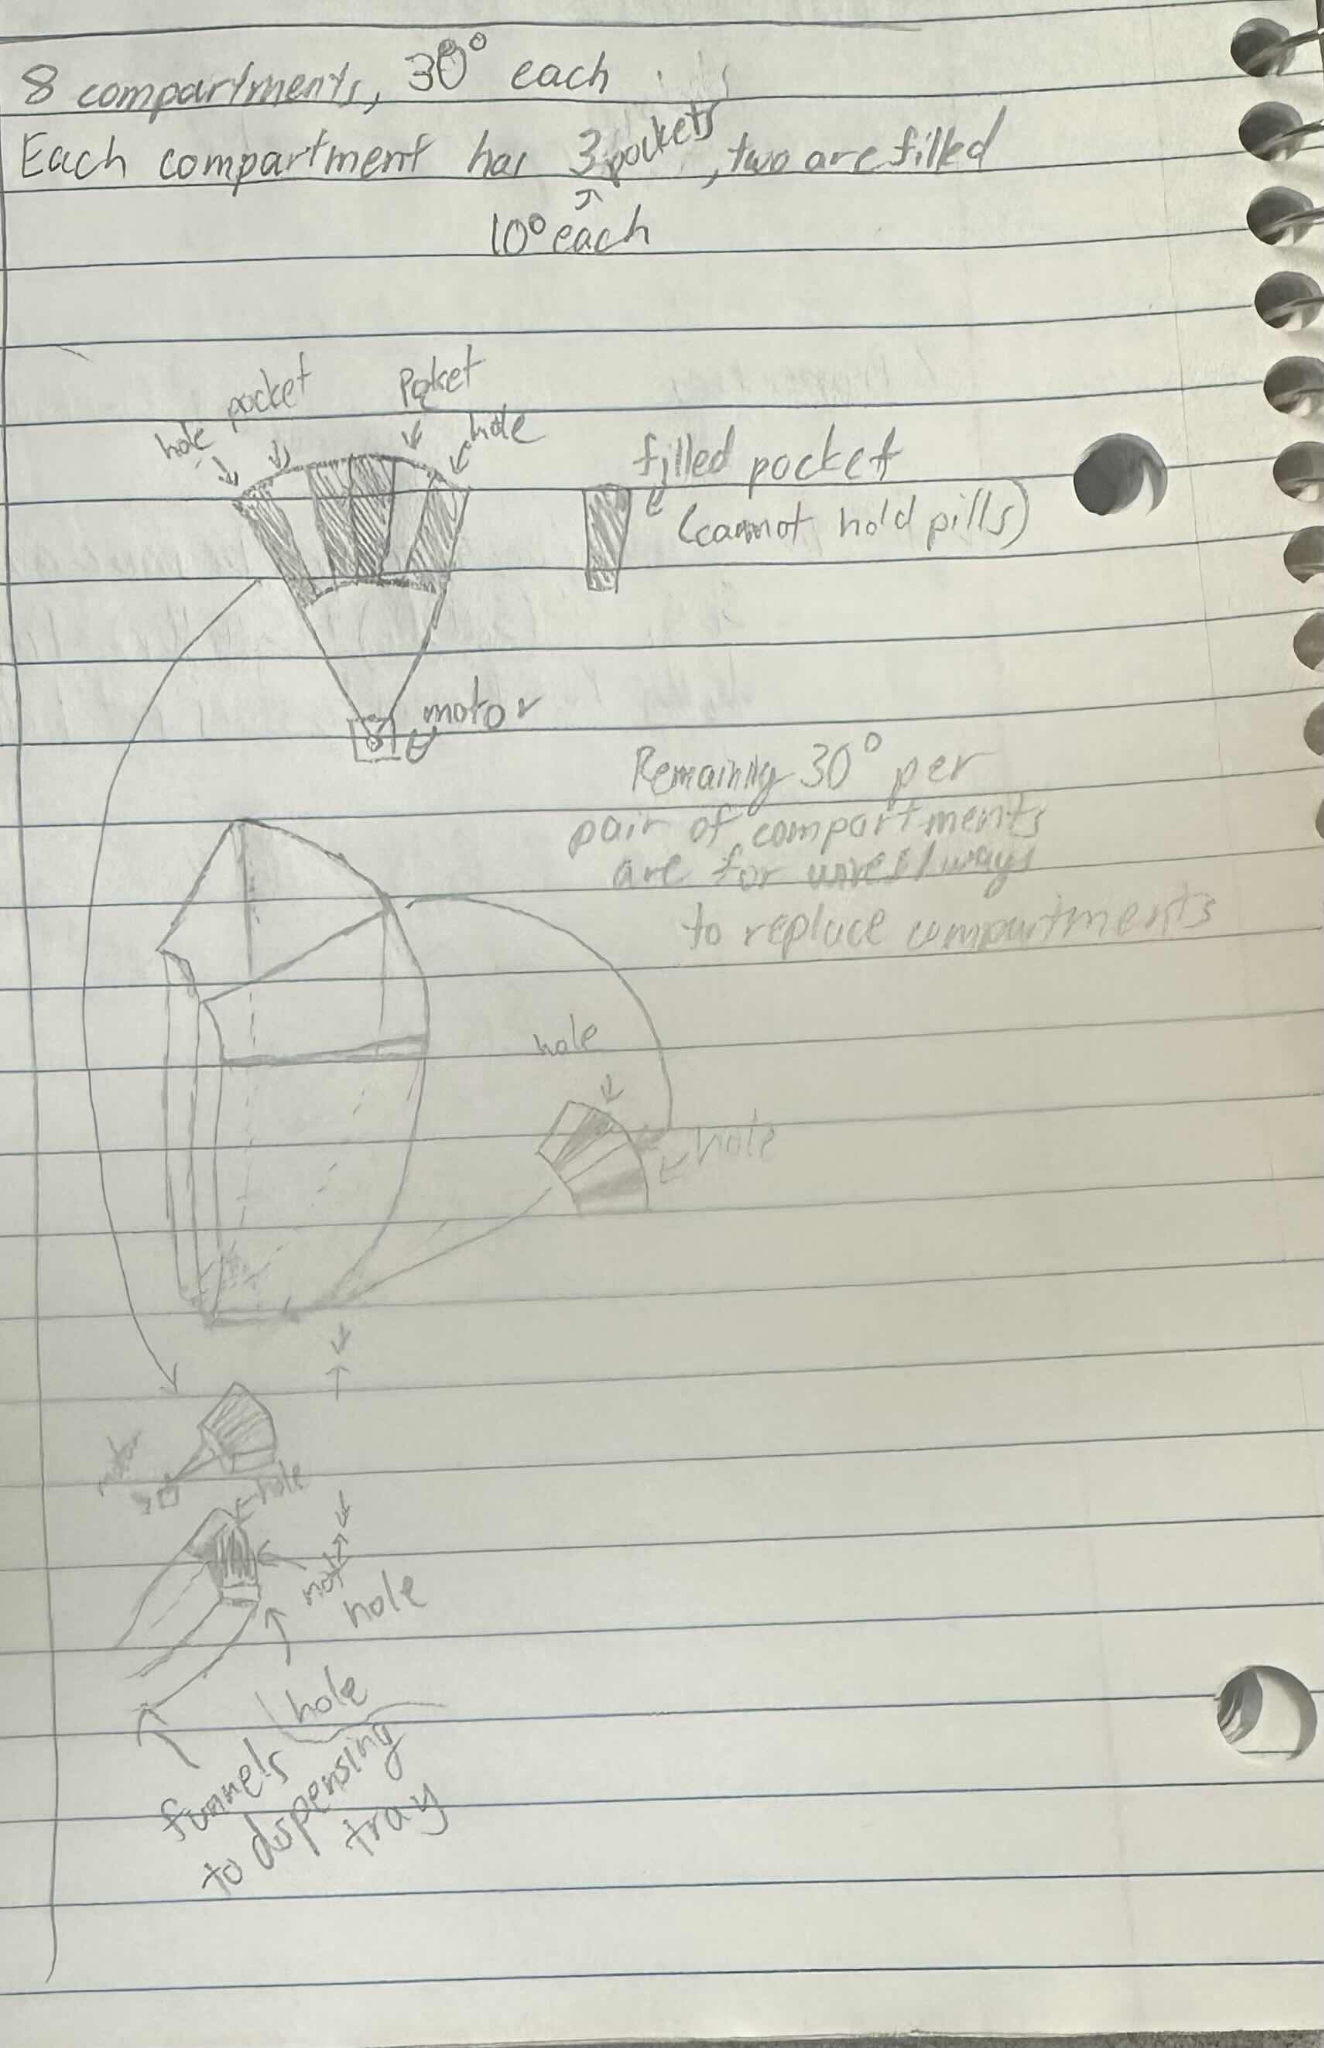 8 compartments, 30° each
Each compartment has 3 pockets, two are filled
10° each
hole pocket
Pocket
hole
filled pocket
(cannot hold pills)
motor
Remaining 30° per
pair of compartments
are for wires/ways
to replace compartments
hole
hole
motor
hole
not
hole
hole
funnels
to dispensing
tray